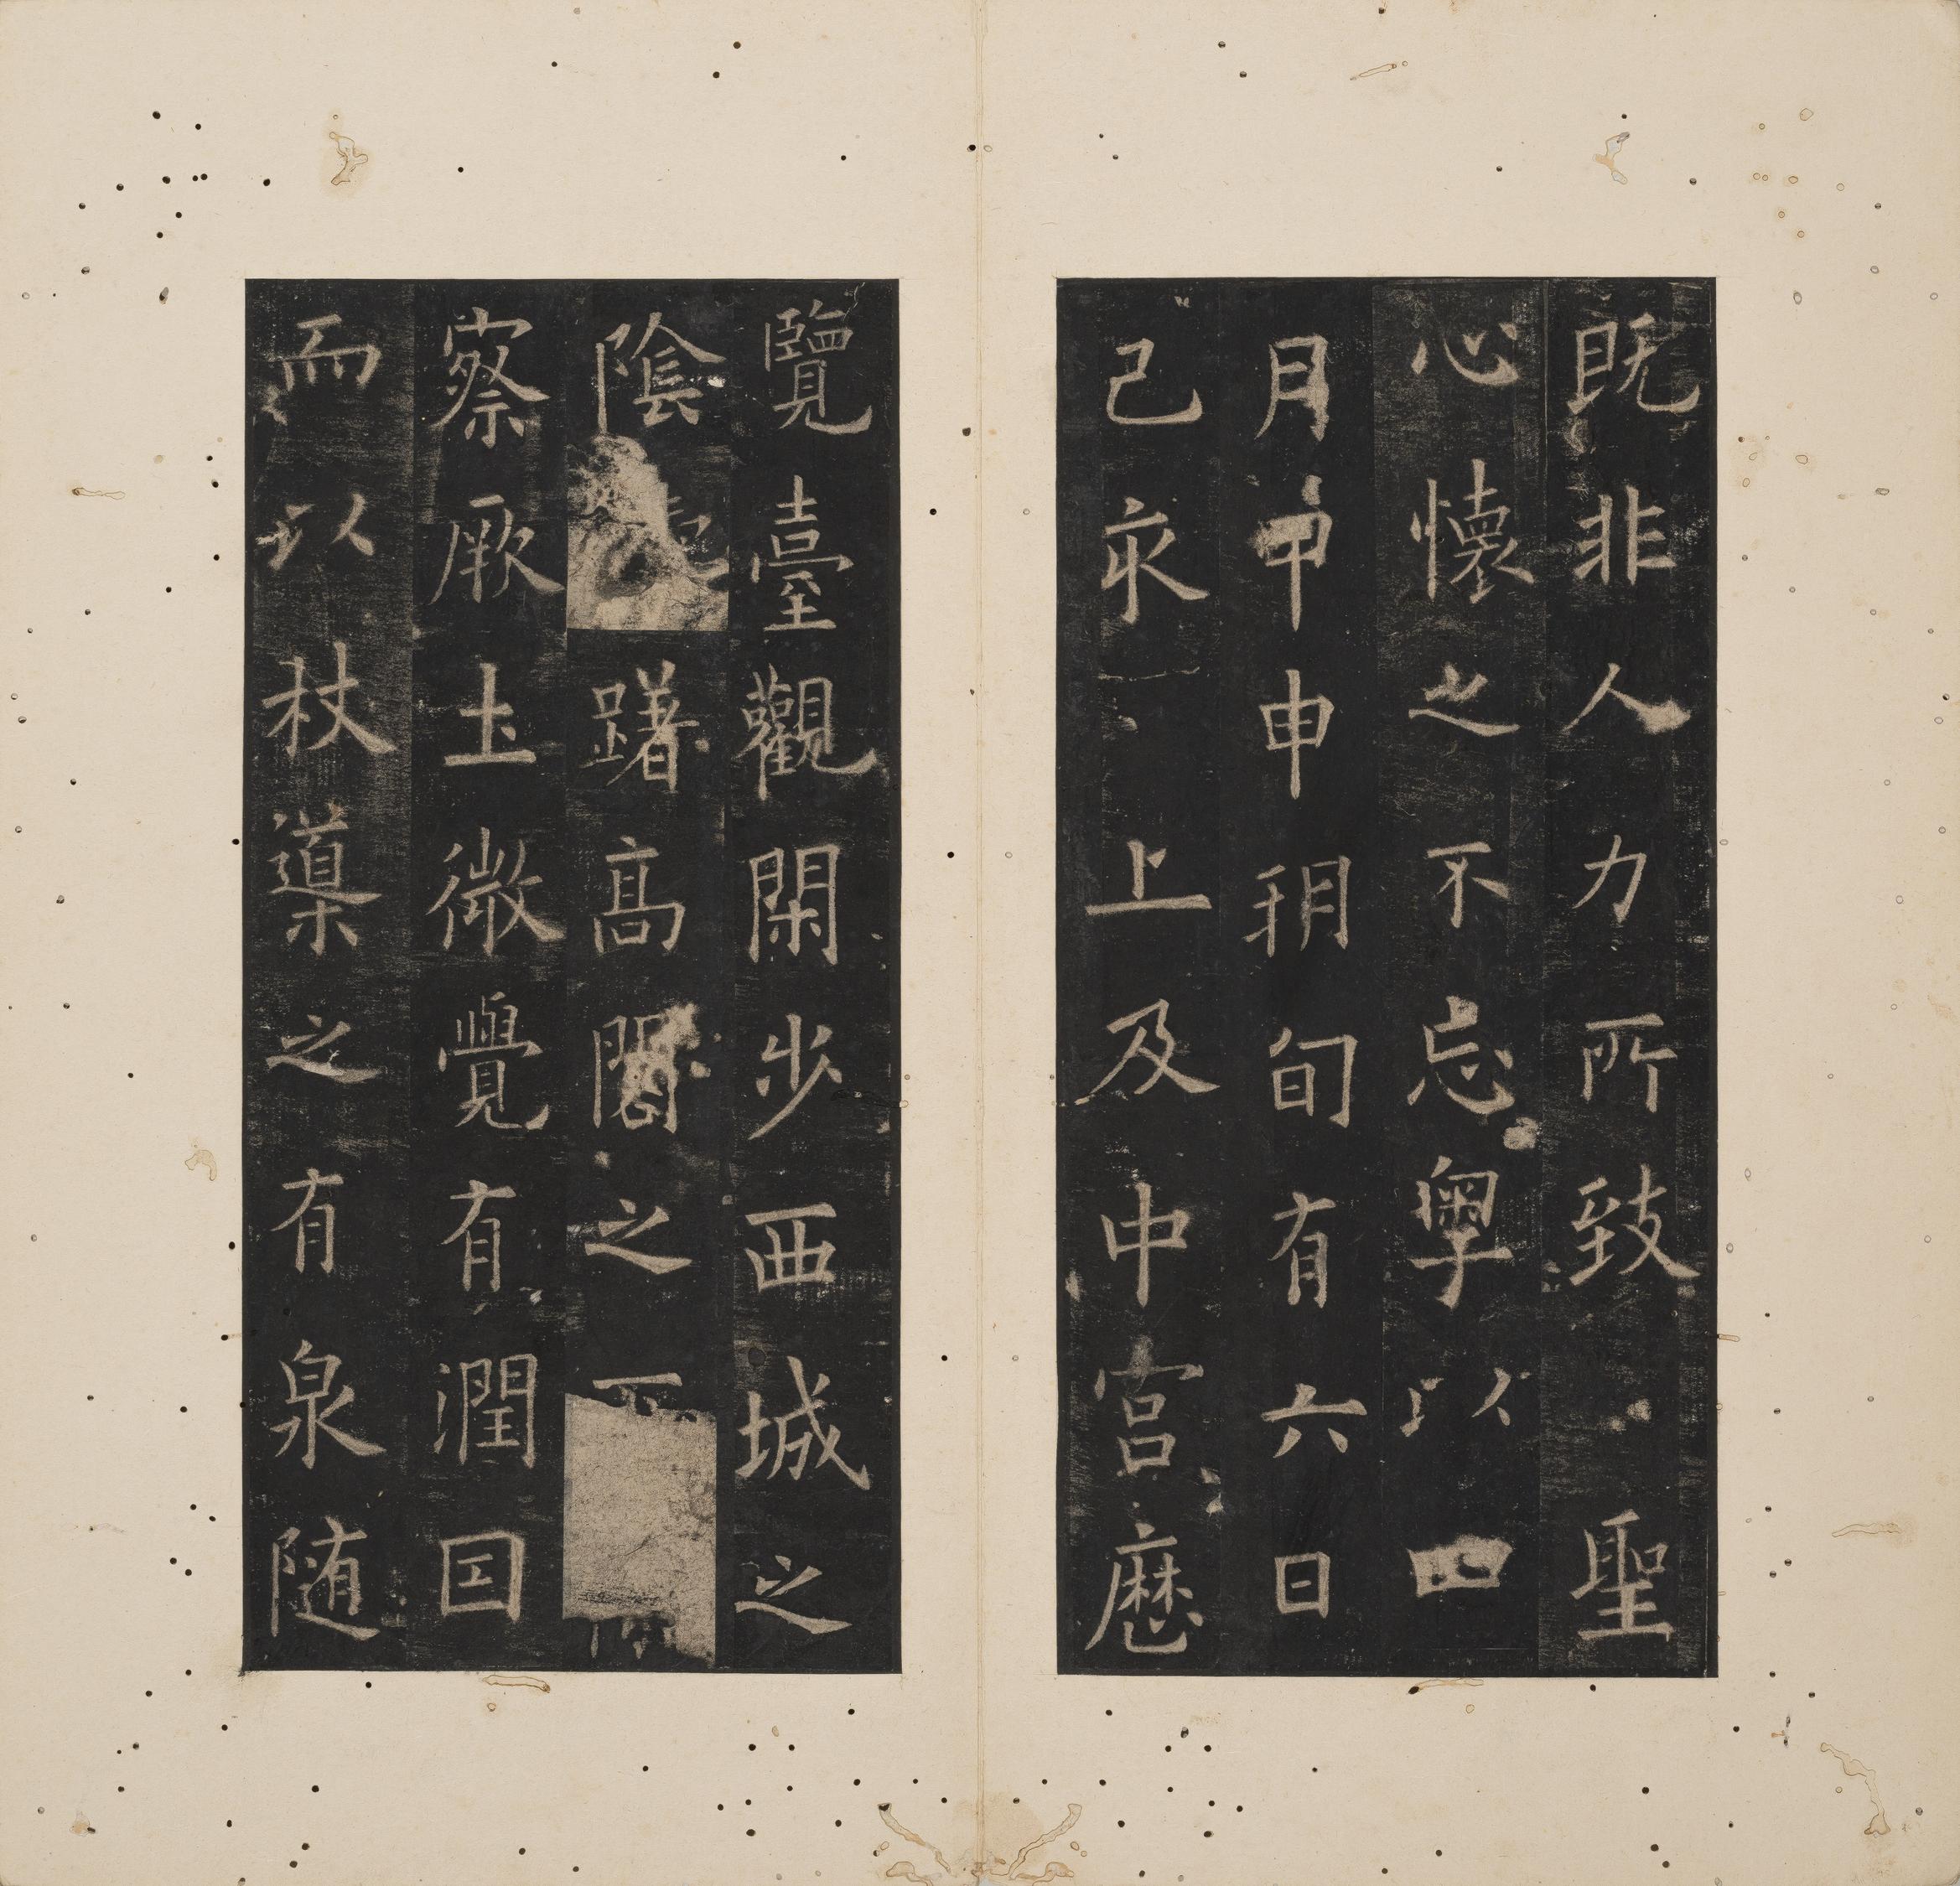 既非人力所致聖
心懷之不忘粵以四
月甲申朔旬有六日
己亥上及中宮歷
覽臺觀閑步西城之
陰躇高閣之下
察厥土微覺有潤因
而以杖導之有泉随